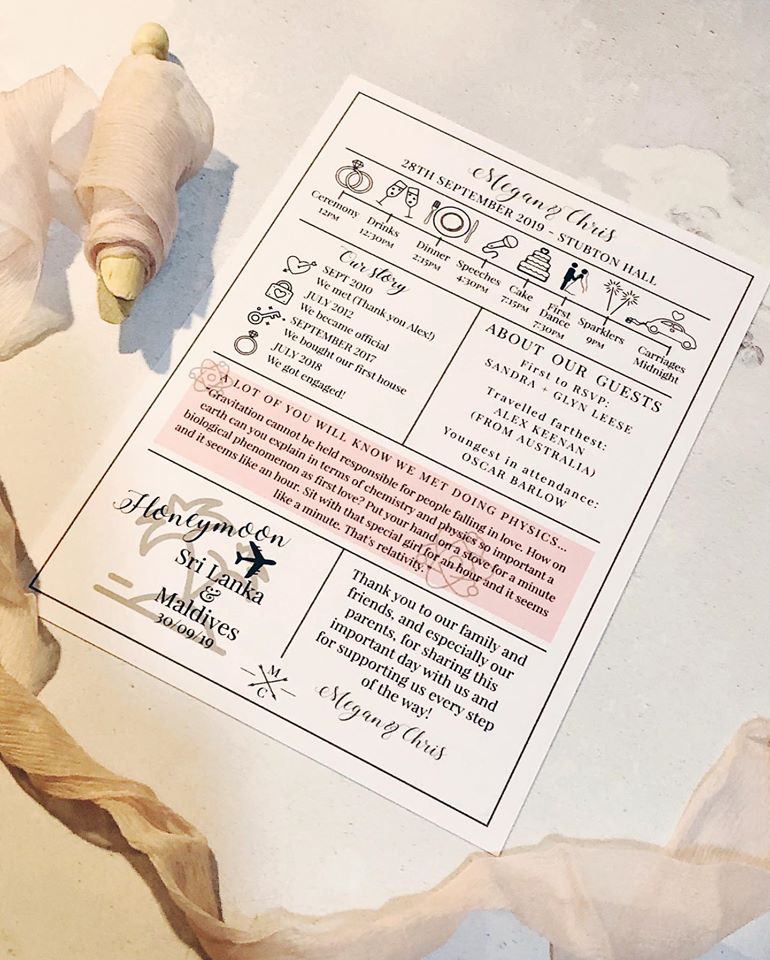 Megan & Chris
28TH SEPTEMBER 2019 - STUBTON HALL
Ceremony
12PM
Drinks
12:30PM
Dinner
2:15PM
Speeches
4:30PM
Cake
7:15PM
First
Dance
7:30PM
Sparklers
9PM
Carriages
Midnight
Our story
SEPT 2010
We met (Thank you Alex!)
JULY 2012
We became official
SEPTEMBER 2017
We bought our first house
JULY 2018
We got engaged!
ABOUT OUR GUESTS
First to RSVP:
SANDRA + GLYN LEESE
Travelled farthest:
ALEX KEENAN
(FROM AUSTRALIA)
Youngest in attendance:
OSCAR BARLOW
A LOT OF YOU WILL KNOW WE MET DOING PHYSICS...
Gravitation cannot be held responsible for people falling in love. How on
earth can you explain in terms of chemistry and physics so important a
biological phenomenon as first love? Put your hand on a stove for a minute
and it seems like an hour. Sit with that special girl for an hour and it seems
like a minute. That's relativity.
Honeymoon
Sri Lanka
&
Maldives
30/09/19
M
C
Thank you to our family and
friends, and especially our
parents, for sharing this
important day with us and
for supporting us every step
of the way!
Megan & Chris